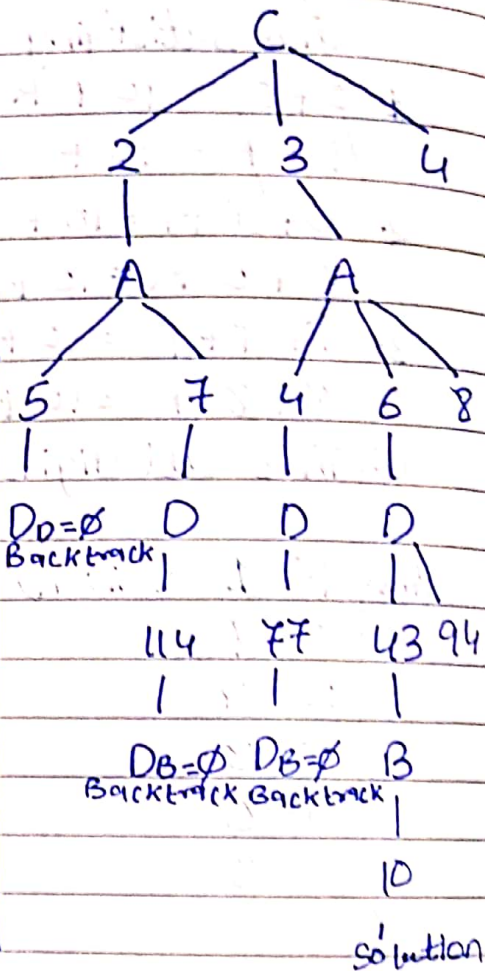 C
2 3 4
A A
5 7 4 6 8
D_D=∅ D D D
Backtrack
114 77 43 94
D_B=∅ D_B=∅ B
Backtrack Backtrack
10
solution